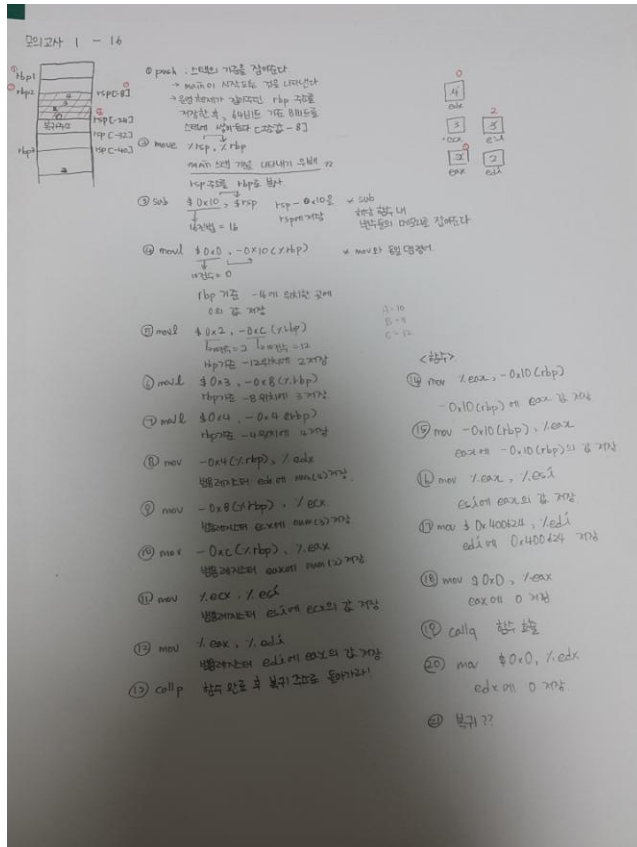 모의고사 1 - 16
rbp1
rbp2
rsp[-8]
rsp[-32]
rsp[-40]
복귀주소
① push . 스택의 기준을 잡아준다
→ main이 시작되는 것을 나타낸다
→ 운영체제가 잡아주던 rbp 주소를
저장한 후, 64비트 기준 8비트로
② move %rsp, %rbp
main 스택 기준 나타내기 위해
rsp 주소를 rbp로 복사
③ sub $0x10, $rsp rsp - 0x10을 * sub
16진법 = 16 rsp에 저장 해당 함수 내
변수들의 메모리를 잡아준다
④ movl $0x0, -0x10(%rbp) * mov와 동일 명령어.
= 0
rbp 기준 -4에 위치한 곳에
0의 값 저장
A-10
B-11
C-12
movl $0x2, -0xc(%rbp)
=2 =12
rbp기준 -12위치에 2저장
⑥ movl $0x3, -0x8(%rbp)
rbp기준 -8위치에 3저장
⑦ movl $0x4, -0x4 (rbp)
rbp기준 -4위치에 4저장
⑧ mov -0x4(%rbp), %edx
범용레지스터 edx에 num(4)저장.
⑨ mov -0x8(%rbp), %ecx
범용레지스터 ecx에 num(3)저장
⑩ mov -0xc(%rbp), %eax
범용레지스터 eax에 num(2)저장
⑪ mov %ecx, %esi
범용레지스터 esi에 ecx의 값 저장
⑫ mov %eax, %edi
범용레지스터 edi에 eax의 값 저장
⑬ callp 함수 완료 후 복귀 주소로 돌아가라!
0
4
edx
2
3
ecx
3
esi
0
2
eax
2
edi
<함수>
⑭ mov %eax, -0x10(rbp)
-0x10(rbp)에 eax 값 저장
⑮ mov -0x10(rbp), %eax
eax에 -0x10(rbp)의 값 저장
mov %eax, %esi
esi에 eax의 값 저장
⑰ mov $0x400624, %edi
edi에 0x400624 저장
⑱ mov $0x0, %eax
eax에 0 저장
⑲ callq 함수 호출
⑳ mov $0x0, %edx
edx에 0 저장.
㉑ 복귀??